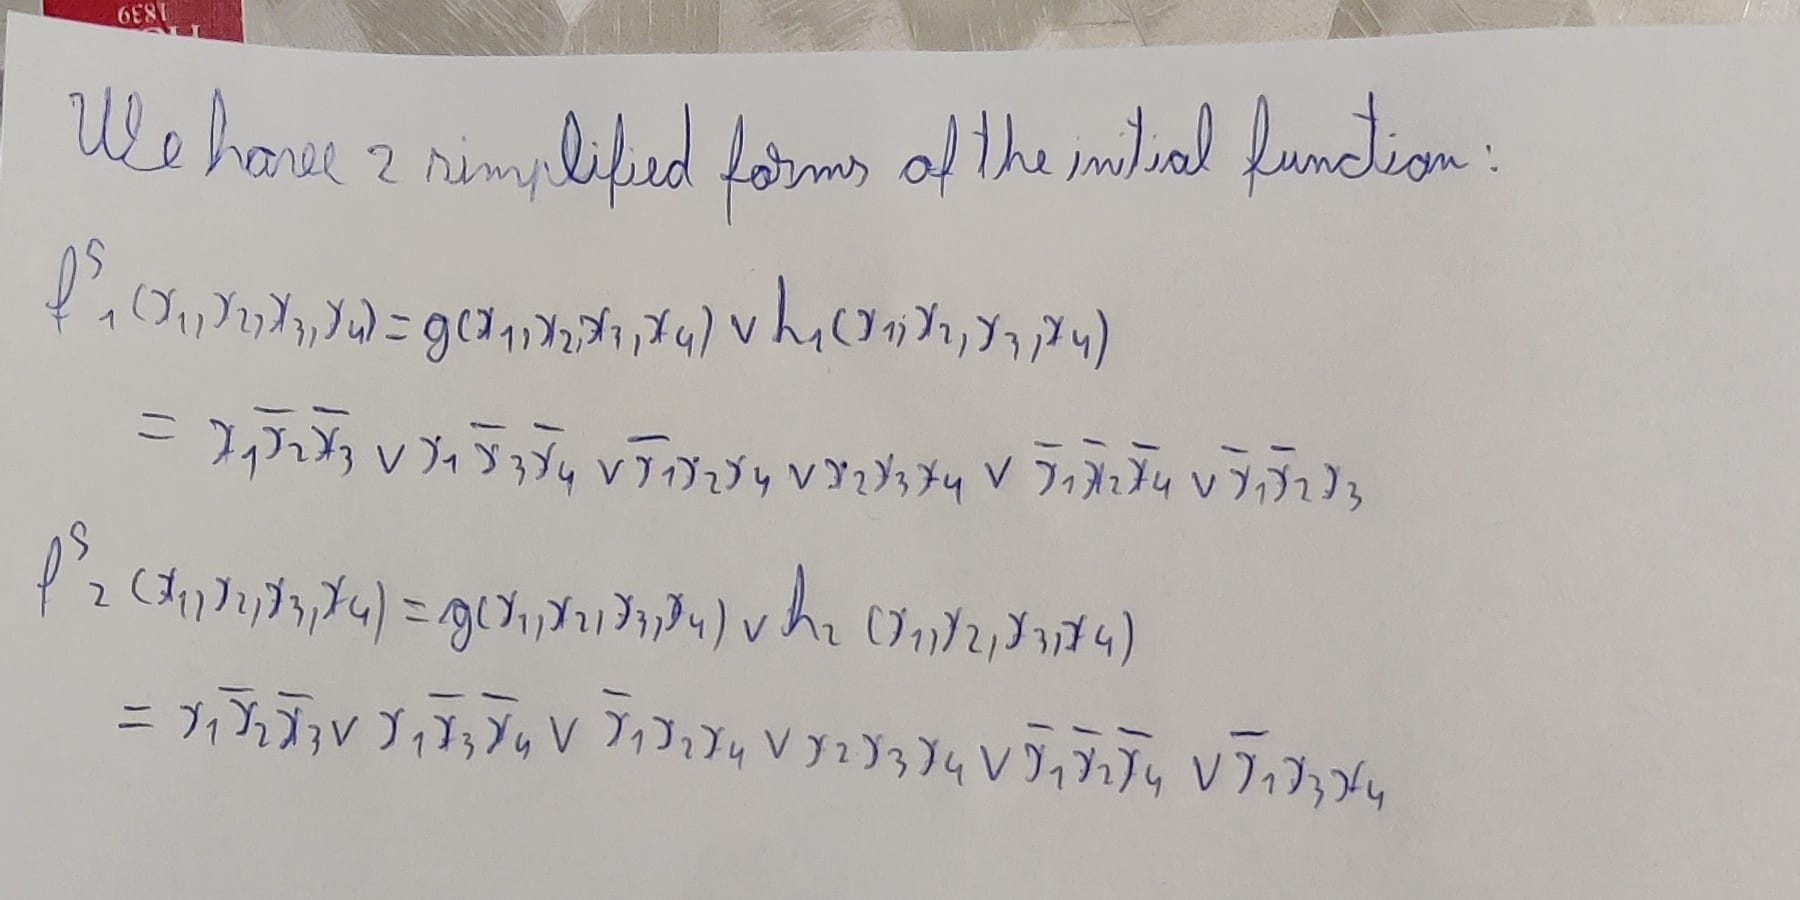 1839
We have 2 simplified forms of the initial function:
fˢ₁(x₁,x₂,x₃,x₄)=g(x₁,x₂,x₃,x₄) ∨ h₁(x₁,x₂,x₃,x₄)
= x₁x̅₂x̅₃ ∨ x₁x̅₃x̅₄ ∨ x̅₁x₂x₄ ∨ x₂x₃x₄ ∨ x̅₁x̅₂x̅₄ ∨ x̅₁x̅₂x₃
fˢ₂(x₁,x₂,x₃,x₄)=g(x₁,x₂,x₃,x₄) ∨ h₂(x₁,x₂,x₃,x₄)
= x₁x̅₂x̅₃ ∨ x₁x̅₃x̅₄ ∨ x̅₁x₂x₄ ∨ x₂x₃x₄ ∨ x̅₁x̅₂x̅₄ ∨ x̅₁x₃x₄